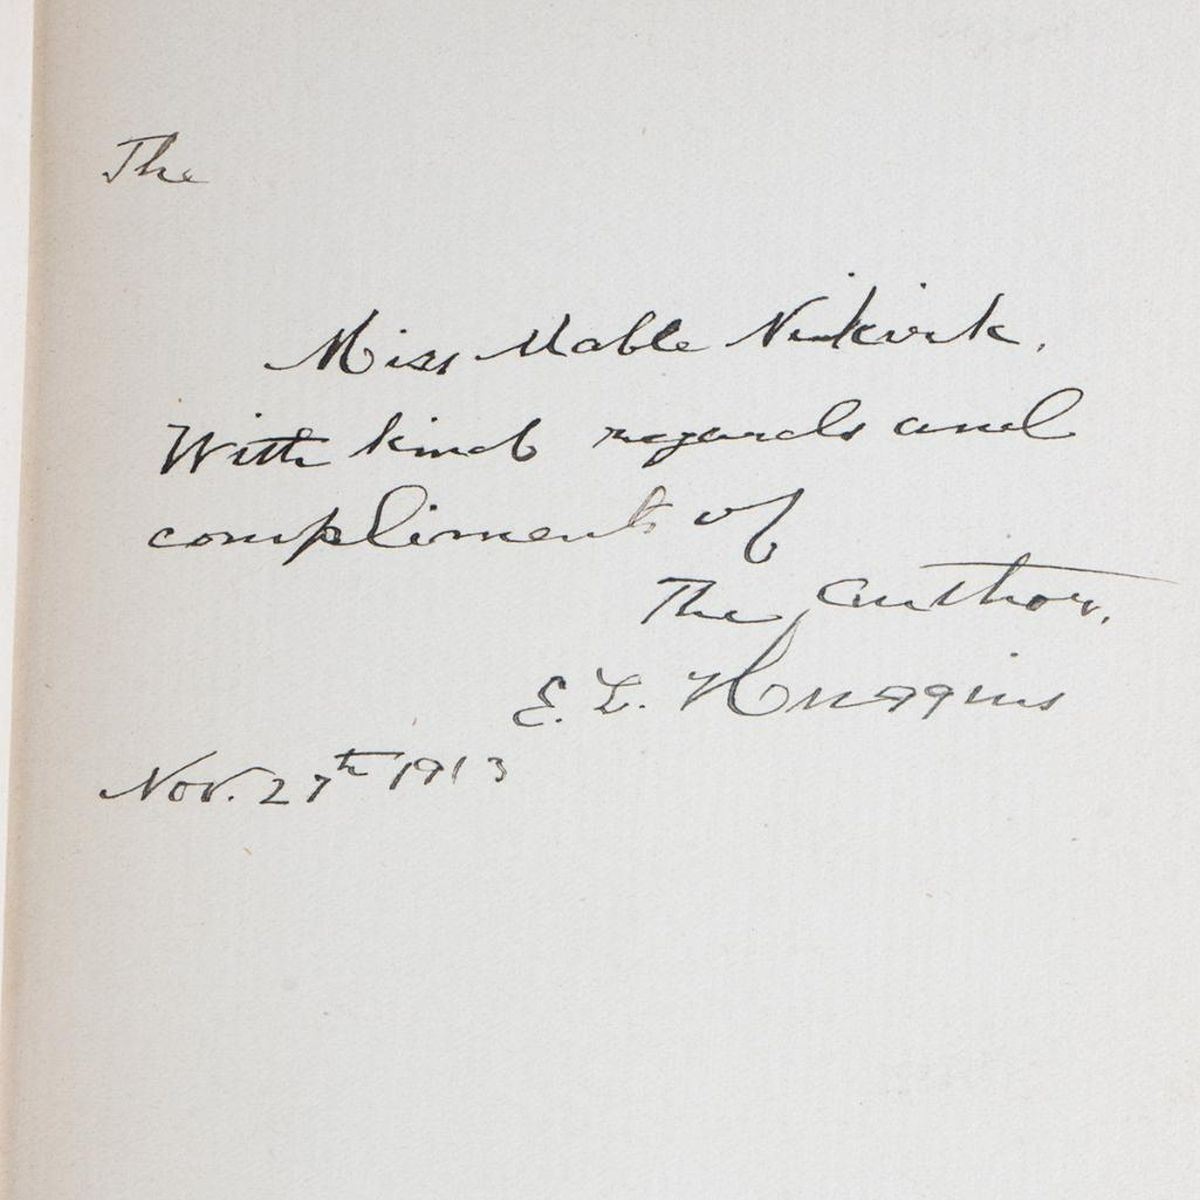 The
Miss Mable Nikirk.
With kind regards and
compliments of
The author.
E. L. Huggins
Nov. 27th 1913